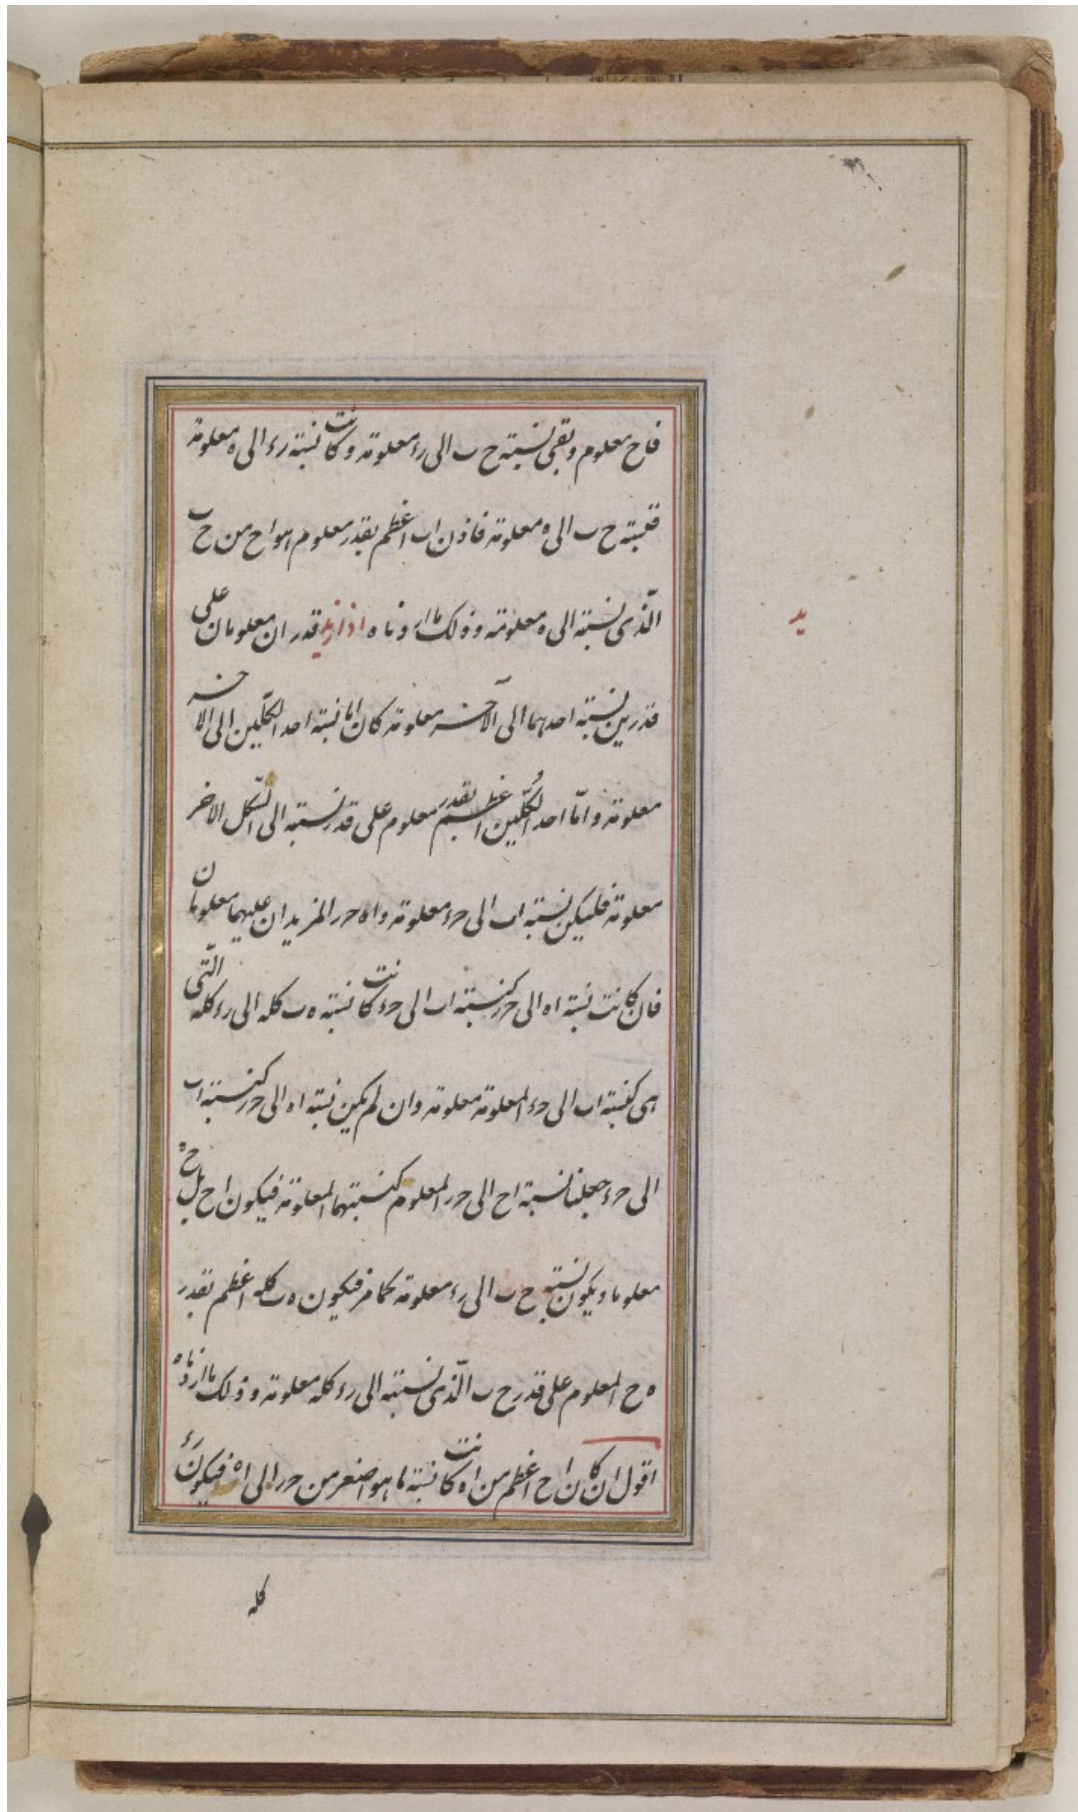 فاح معلوم وبقى نسبة ح ب الى رء معلومة وكانت نسبة رء الى ه معلومة
فنسبة ح ب الى ه معلومة فاذن اب اعظم بقدر معلوم هو اح من ح ب
الّذى نسبته الى ه معلومة وذلك ما اردناه اذا زيد قدران معلومان على
يد
قدرين نسبة احدهما الى الآخر معلومة كان اما نسبة احد الكلّين الى الاخر
معلومة وامّا احد الكُلّين اعظم بقدر معلوم على قدر نسبته الى الكل الاخر
معلومة فليكن نسبة اب الى حء معلومة واه حر المزيدان عليهما معلومان
فان كانت نسبة اه الى حر كنسبة اب الى حء كانت نسبة ه ب كله الى رء كله الّتى
هى كنسبة اب الى حء المعلومة معلومة وان لم يكن نسبة اه الى حر كنسبة اب
الى حء جعلنا نسبة اح الى حر المعلوم كنسبتهما المعلومة فيكون اح بل ح ه
معلوما ويكون نسبة ح ب الى رء معلومة كما مر فيكون ه ب كله اعظم بقدر
ه ح المعلوم على قدر ح ب الّذى نسبته الى رء كله معلومة وذلك ما اردناه
اقول ان كان اح اعظم من اه كانت نسبة ما هو اصغر من حر الى اه فيكون رء
كله